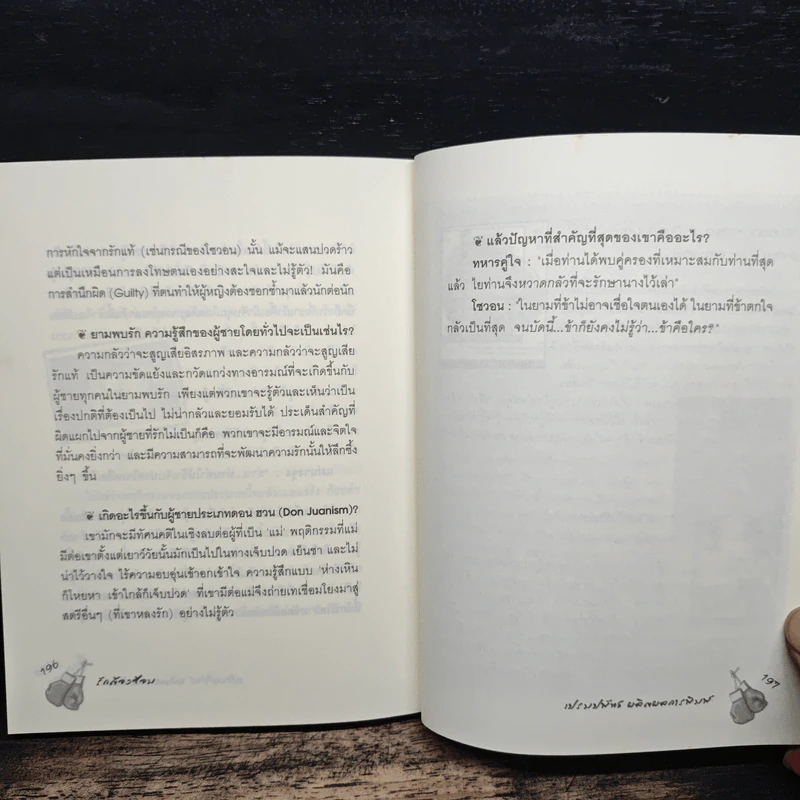 การหักใจจากรักแท้ (เช่นกรณีของโชวอน) นั้น แม้จะแสนปวดร้าว
แต่เป็นเหมือนการลงโทษตนเองอย่างสะใจและไม่รู้ตัว! มันคือ
การสำนึกผิด (Guilty) ที่ตนทำให้ผู้หญิงต้องชอกช้ำมาแล้วนักต่อนัก
❦ ยามพบรัก ความรู้สึกของผู้ชายโดยทั่วไปจะเป็นเช่นไร?
ความกลัวว่าจะสูญเสียอิสรภาพ และความกลัวว่าจะสูญเสีย
รักแท้ เป็นความขัดแย้งและกวัดแกว่งทางอารมณ์ที่จะเกิดขึ้นกับ
ผู้ชายทุกคนในยามพบรัก เพียงแต่พวกเขาจะรู้ตัวและเห็นว่าเป็น
เรื่องปกติที่ต้องเป็นไป ไม่น่ากลัวและยอมรับได้ ประเด็นสำคัญที่
ผิดแผกไปจากผู้ชายที่รักไม่เป็นก็คือ พวกเขาจะมีอารมณ์และจิตใจ
ที่มั่นคงยิ่งกว่า และมีความสามารถที่จะพัฒนาความรักนั้นให้ลึกซึ้ง
ยิ่งๆ ขึ้น
❦ เกิดอะไรขึ้นกับผู้ชายประเภทดอน ฮวน (Don Juanism)?
เขามักจะมีทัศนคติในเชิงลบต่อผู้ที่เป็น 'แม่' พฤติกรรมที่แม่
มีต่อเขาตั้งแต่เยาว์วัยนั้นมักเป็นไปในทางเจ็บปวด เย็นชา และไม่
น่าไว้วางใจ ไร้ความอบอุ่นเข้าอกเข้าใจ ความรู้สึกแบบ 'ห่างเหิน
ก็โหยหา เข้าใกล้ก็เจ็บปวด' ที่เขามีต่อแม่จึงถ่ายเทเชื่อมโยงมาสู่
สตรีอื่นๆ (ที่เขาหลงรัก) อย่างไม่รู้ตัว
196
❦ แล้วปัญหาที่สำคัญที่สุดของเขาคืออะไร?
ทหารคู่ใจ : "เมื่อท่านได้พบคู่ครองที่เหมาะสมกับท่านที่สุด
แล้ว ไยท่านจึงหวาดกลัวที่จะรักษานางไว้เล่า"
โชวอน : "ในยามที่ข้าไม่อาจเชื่อใจตนเองได้ ในยามที่ข้าตกใจ
กลัวเป็นที่สุด จนบัดนี้...ข้าก็ยังคงไม่รู้ว่า...ข้าคือใคร?"
197